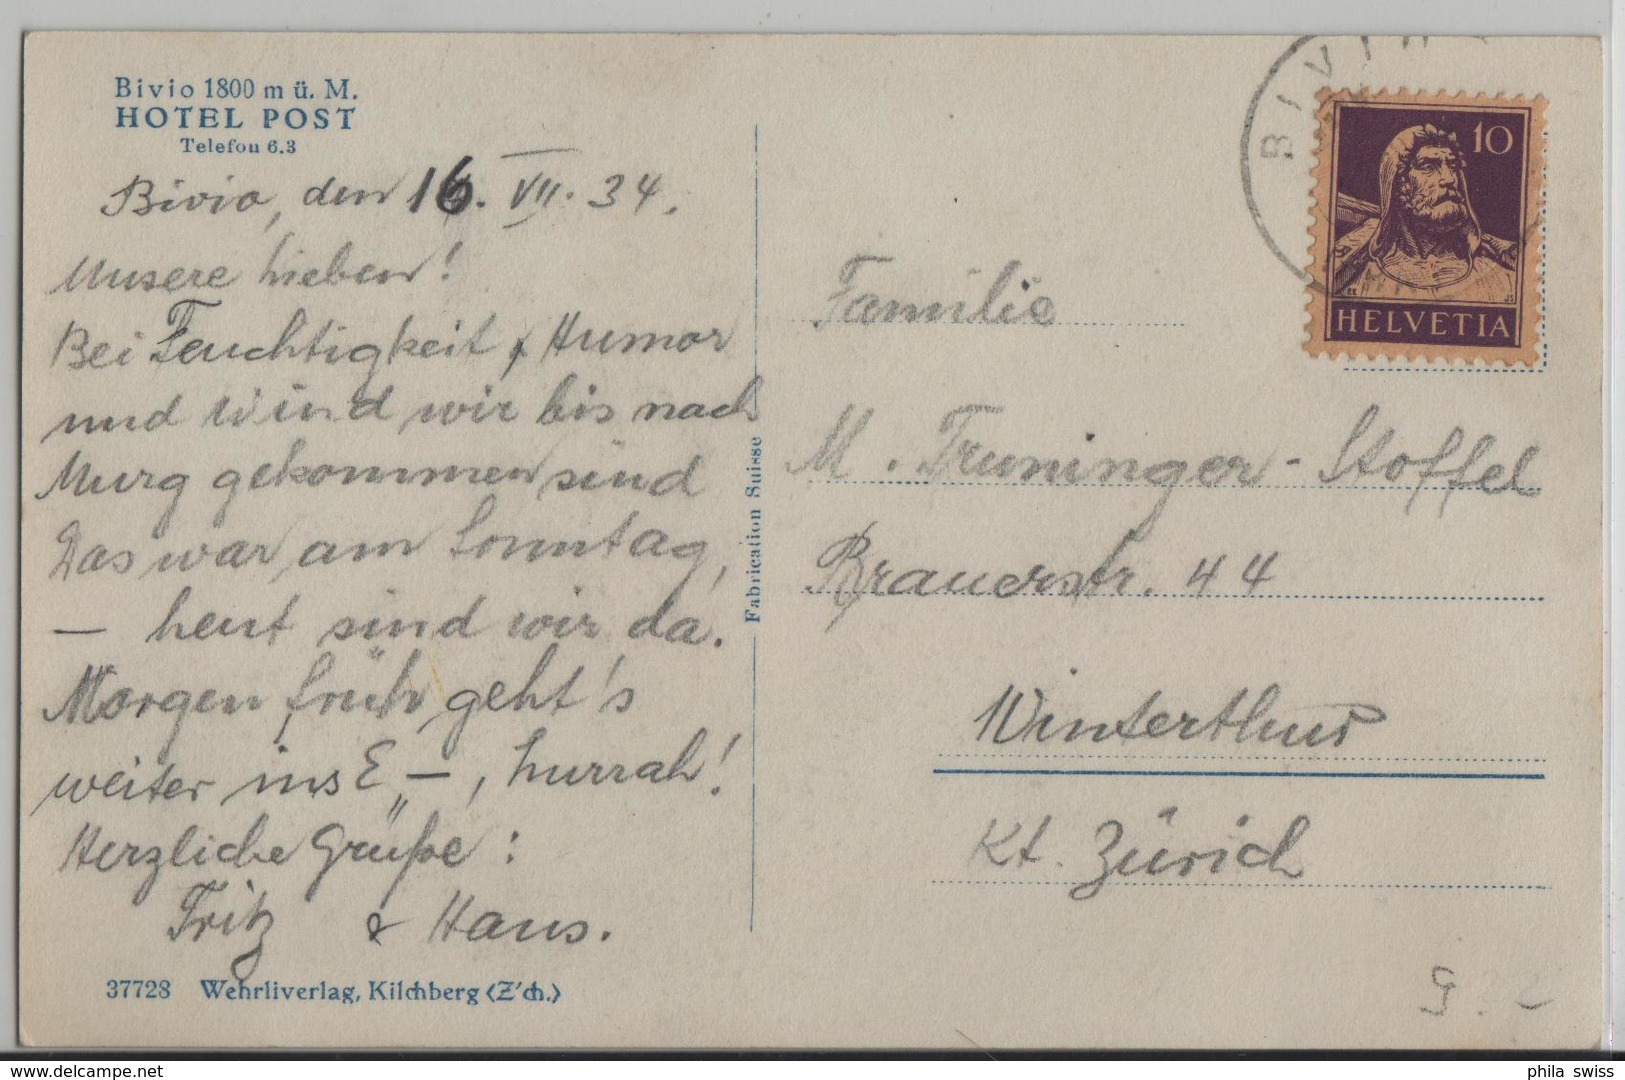 Bivio 1800 m ü. M.
HOTEL POST
Telefon 6.3
Bivio, den 16. VII. 34.
Unsere Lieben!
Bei Feuchtigkeit, Humor
und Wind wir bis nach
Murg gekommen sind
Das war am Sonntag,
— heut sind wir da.
Morgen früh geht's
weiter ins E„—, hurrah!
Herzliche Grüße:
Fritz & Hans.
37728 Wehrliverlag, Kilchberg (Z'ch.)
Fabrication Suisse
BIVIO
10
HELVETIA
Familie
M. Truninger-Stoffel
Brauerstr. 44
Winterthur
Kt. Zürich
delcampe.net
phila_swiss